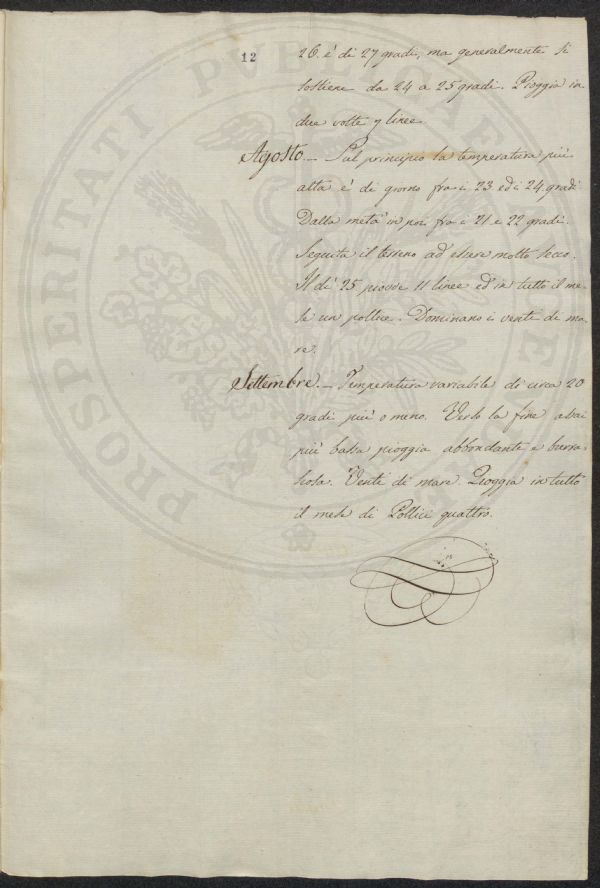 12
26. è di 27 gradi, ma generalmente si
sostiene da 24 a 25 gradi. Pioggia in
due volte 9 linee.
Agosto. _ Sul principio la temperatura più
alta è di giorno fra i 23 ed i 24 gradi
Dalla metà in poi fra i 21 e 22 gradi.
Seguita il terreno ad essere molto secco.
Il dì 25 piovve 11 linee ed in tutto il me-
se un pollice. Dominano i venti di ma-
re.
Settembre. _ Temperatura variabile di circa 20
gradi più o meno. Verso la fine assai
più bassa pioggia abbondante e burra-
scosa. Venti di mare. Pioggia in tutto
il mese di Pollici quattro.
PROSPERITATI PVBLICAE